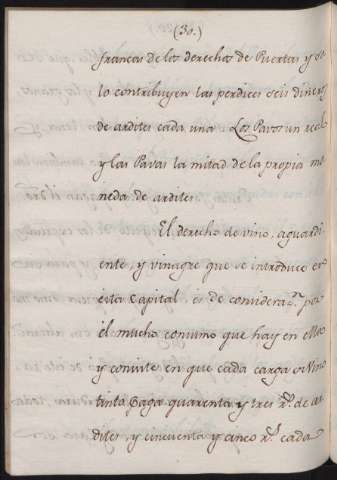 (30.)
francas de los derechos de Puertas y so
lo contribuyen las perdices seis dineros
de ardites cada una Los Pavos un real
y las Pavas la mitad de la propia mo
neda de ardites
El derecho de vino, aguardi
ente, y vinagre que se introduce en
esta Capital es de considera.on por
el mucho consumo que hay en ellos
y consiste en que cada carga de Vino
tinto Paga quarenta y tres r.s de ar
dites, y cincuenta y cinco r.s cada